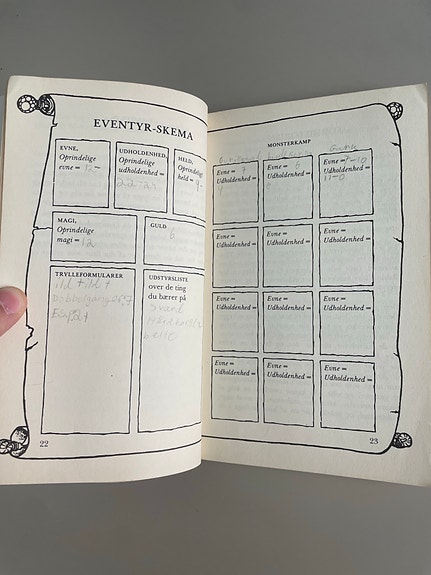 EVENTYR-SKEMA
EVNE,
Oprindelige
evne =
UDHOLDENHED,
Oprindelige
udholdenhed =
HELD,
Oprindelig
held = 9
MAGI,
Oprindelige
magi = 12
GULD
6
TRYLLEFORMULARER
ild + ild +
UDSTYRSLISTE
over de ting
du bærer på
Sværd
22
MONSTERKAMP
Evne = 7
Udholdenhed =
Evne = 6
Udholdenhed =
Evne =
Udholdenhed =
11-0
Evne =
Udholdenhed =
Evne =
Udholdenhed =
Evne =
Udholdenhed =
Evne =
Udholdenhed =
Evne =
Udholdenhed =
Evne =
Udholdenhed =
Evne =
Udholdenhed =
Evne =
Udholdenhed =
Evne =
Udholdenhed =
23